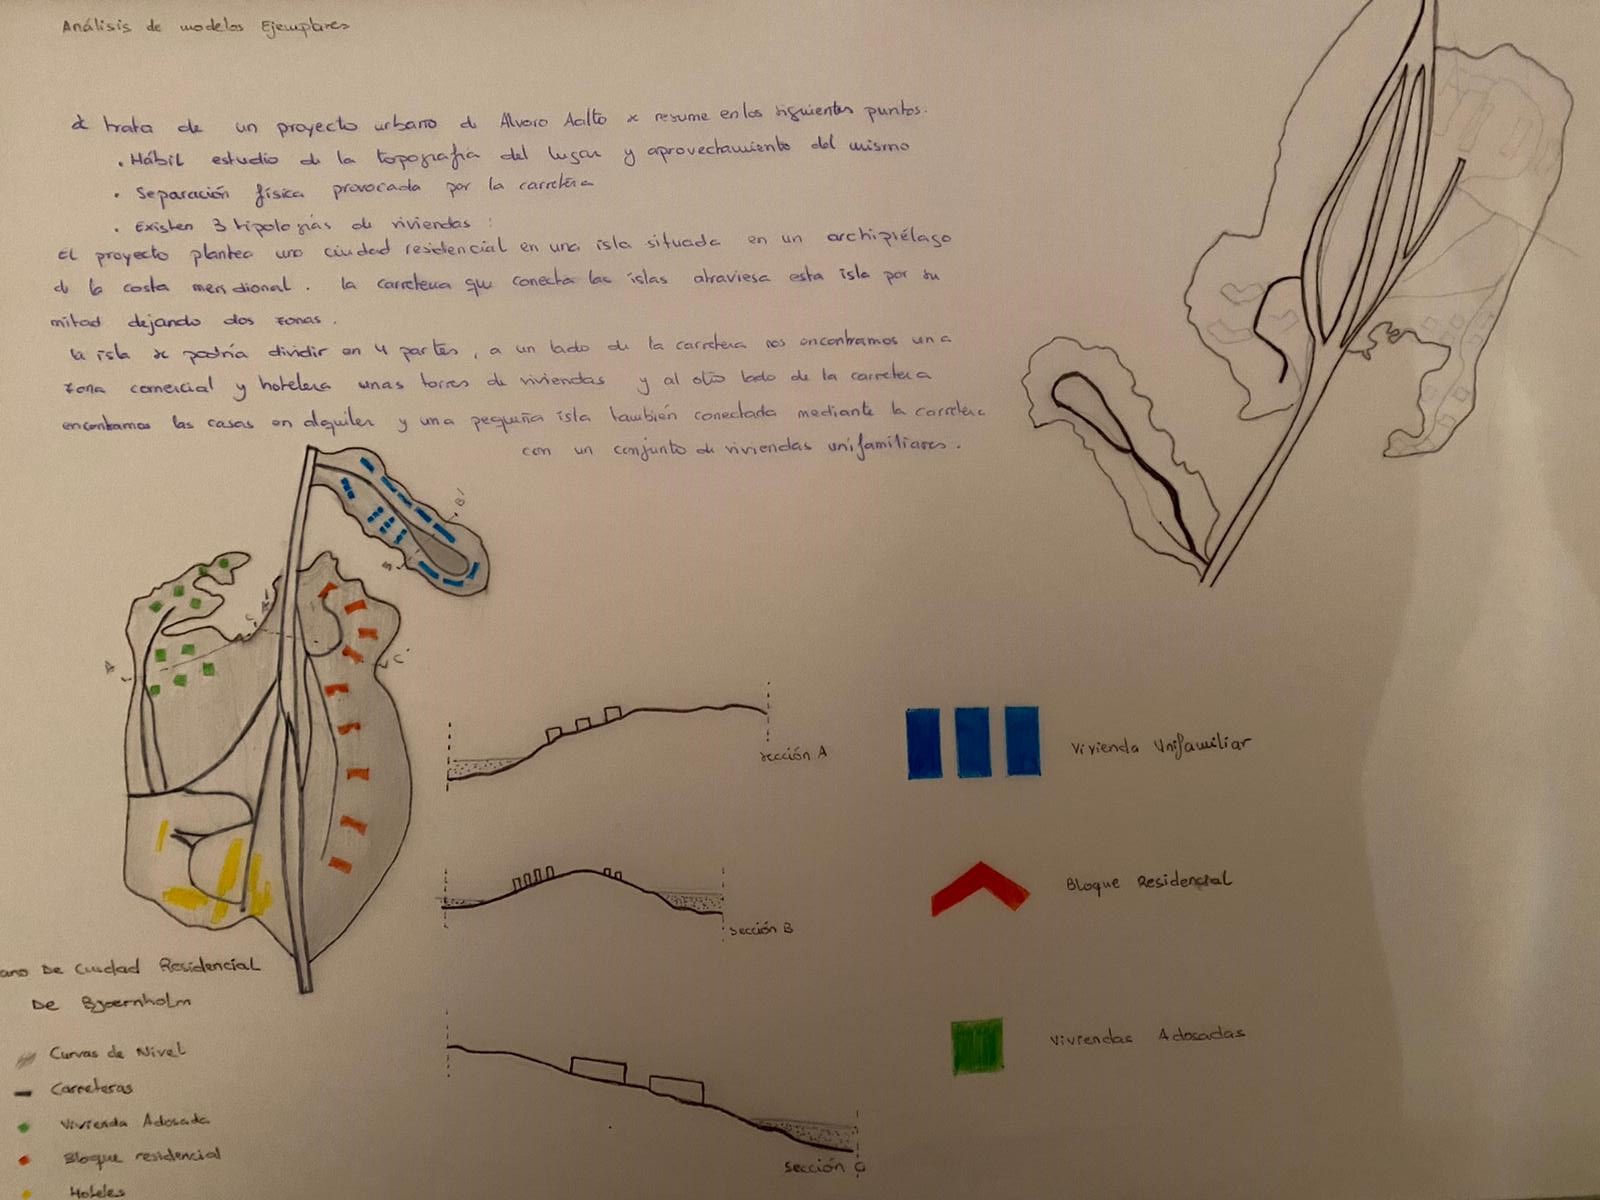 Análisis de modelos Ejemplares
se trata de un proyecto urbano de Alvaro Aalto se resume en los siguientes puntos:
· Hábil estudio de la topografía del lugar y aprovechamiento del mismo
· Separación física provocada por la carretera
· Existen 3 tipologías de viviendas :
El proyecto plantea una ciudad residencial en una isla situada en un archipiélago
de la costa meridional. la carretera que conecta las islas atraviesa esta isla por su
mitad dejando dos zonas.
la isla se podría dividir en 4 partes, a un lado de la carretera nos encontramos una
zona comercial y hotelera unas torres de viviendas y al otro lado de la carretera
encontramos las casas en alquiler y una pequeña isla también conectada mediante la carretera
con un conjunto de viviendas unifamiliares.
B'
B
A'
C
A
C'
sección A
Vivienda Unifamiliar
Sección B
Bloque Residencial
Sección C
Viviendas Adosadas
ano De Ciudad Residencial
De Bjoernholm
Curvas de Nivel
Carreteras
Vivienda Adosada
Bloque residencial
Hoteles